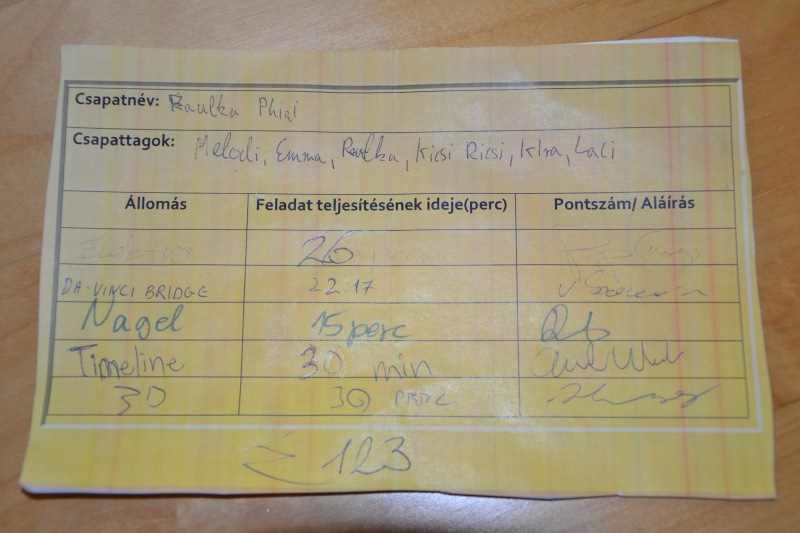 Csapatnév: Raulka Phigi
Csapattagok: Melodi, Emma, Raulka, Kicsi Ricsi, Klra, Laci
Állomás Feladat teljesítésének ideje(perc) Pontszám/ Aláírás
26
DA-VINCI BRIDGE 22:17
Nagel 15 perc
Timeline 30 min
3D 30 perc
= 123